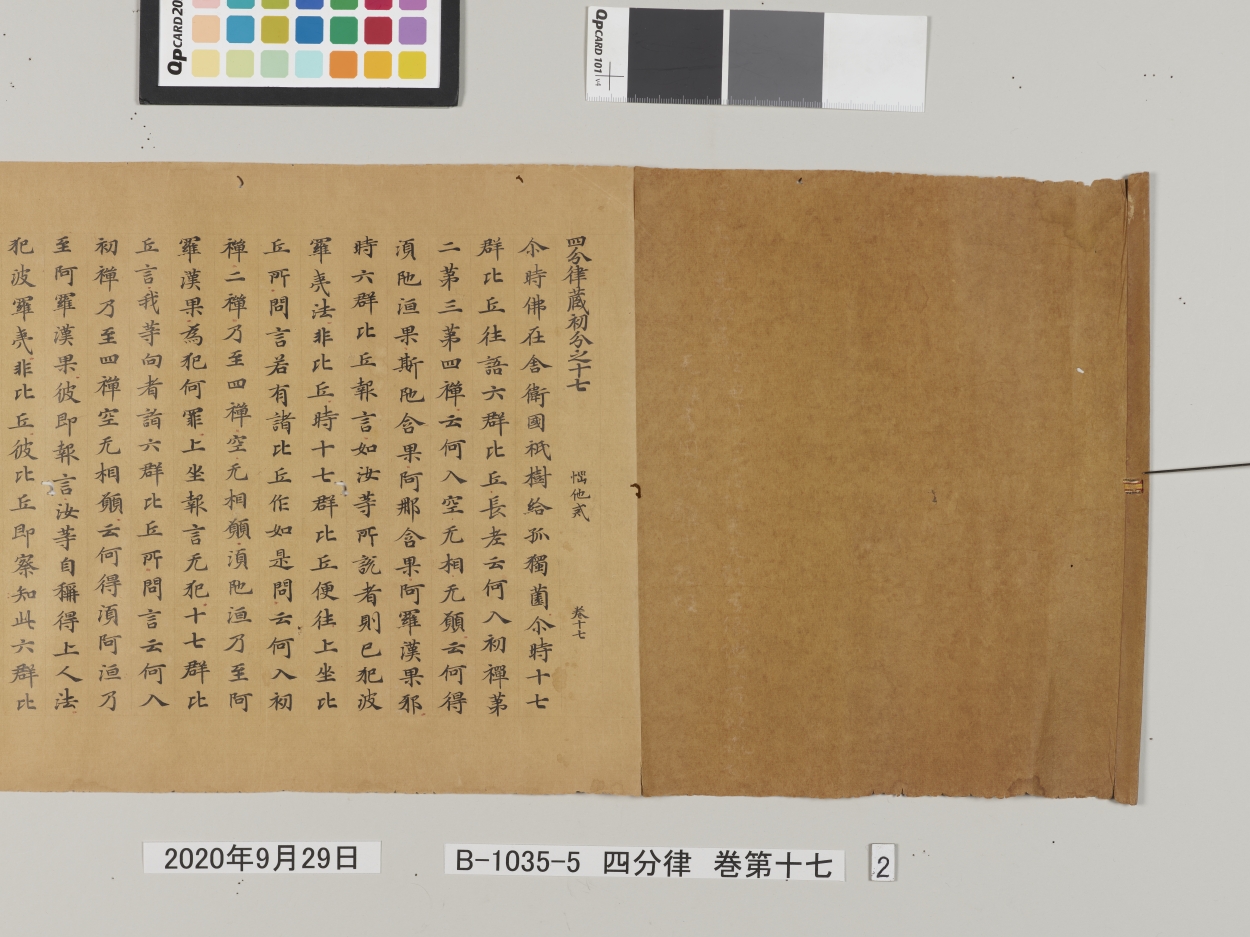 QpCARD 20
QpCARD 101 v4
四分律蔵初分之十七 惱他貳 巻十七
尒時佛在舎衛國祇樹給孤獨薗尒時十七
群比丘往語六群比丘長老云何入初禪第
二第三第四禪云何入空无相无願云何得
湏陁洹果斯陁含果阿那含果阿羅漢果邪
時六群比丘報言如汝等所説者則已犯波
羅夷法非比丘時十七群比丘便往上坐比
丘所問言若有諸比丘作如是問云何入初
禪二禪乃至四禪空无相願湏陁洹乃至阿
羅漢果為犯何罪上坐報言无犯十七群比
丘言我等向者詣六群比丘所問言云何入
初禪乃至四禪空无相願云何得湏阿洹乃
至阿羅漢果彼即報言汝等自稱得上人法
犯波羅夷非比丘彼比丘即察知此六群比
2020年9月29日
B-1035-5 四分律 巻第十七
2